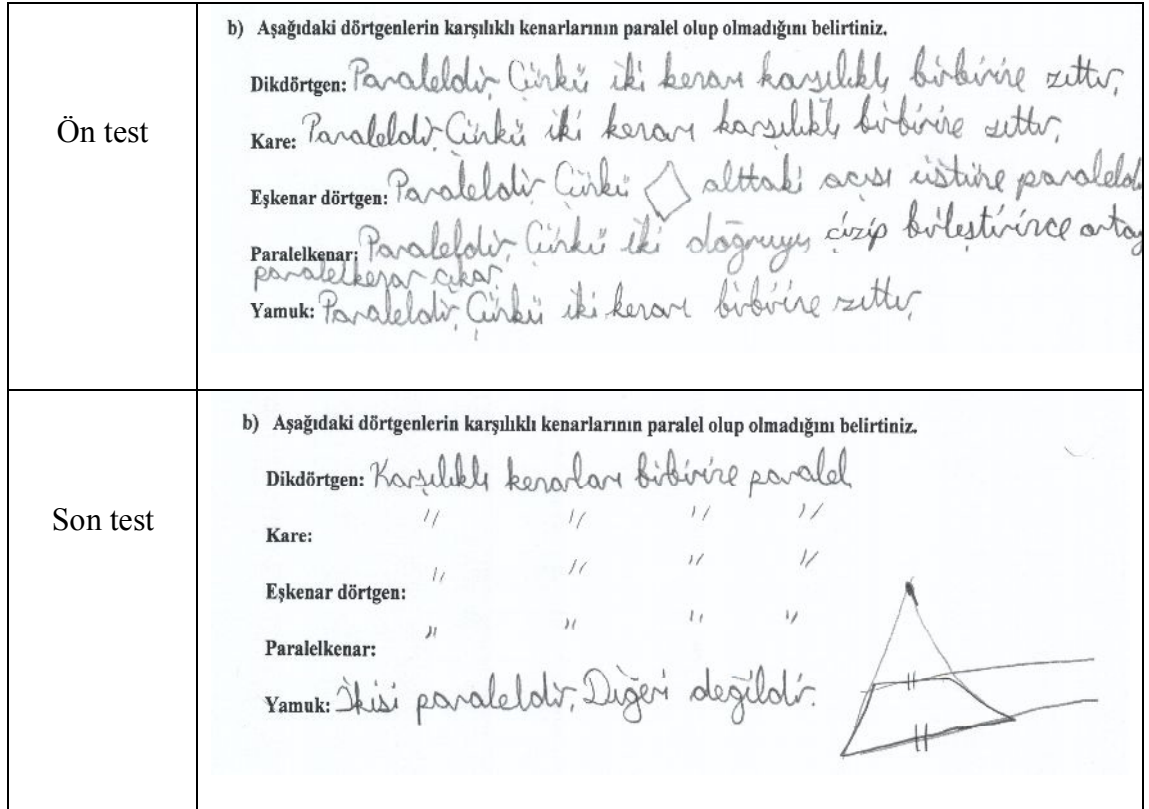 Ön test
b) Aşağıdaki dörtgenlerin karşılıklı kenarlarının paralel olup olmadığını belirtiniz.
Dikdörtgen: Paraleldir, Çünkü iki kenarı karşılıklı birbirine zıttır,
Kare: Paraleldir, Çünkü iki kenarı karşılıklı birbirine zıttır,
Eşkenar dörtgen: Paraleldir Çünkü alttaki açısı üstüne paraleldi
Paralelkenar: Paraleldir, Çünkü iki doğruyu çizip birleştirince ortay
paralelkenar çıkar.
Yamuk: Paraleldir, Çünkü iki kenarı birbirine zıttır,
Son test
b) Aşağıdaki dörtgenlerin karşılıklı kenarlarının paralel olup olmadığını belirtiniz.
Dikdörtgen: Karşılıklı kenarları birbirine paralel
Kare: " " " "
Eşkenar dörtgen: " " " "
Paralelkenar: " " " "
Yamuk: İkisi paraleldir, Diğeri değildir.